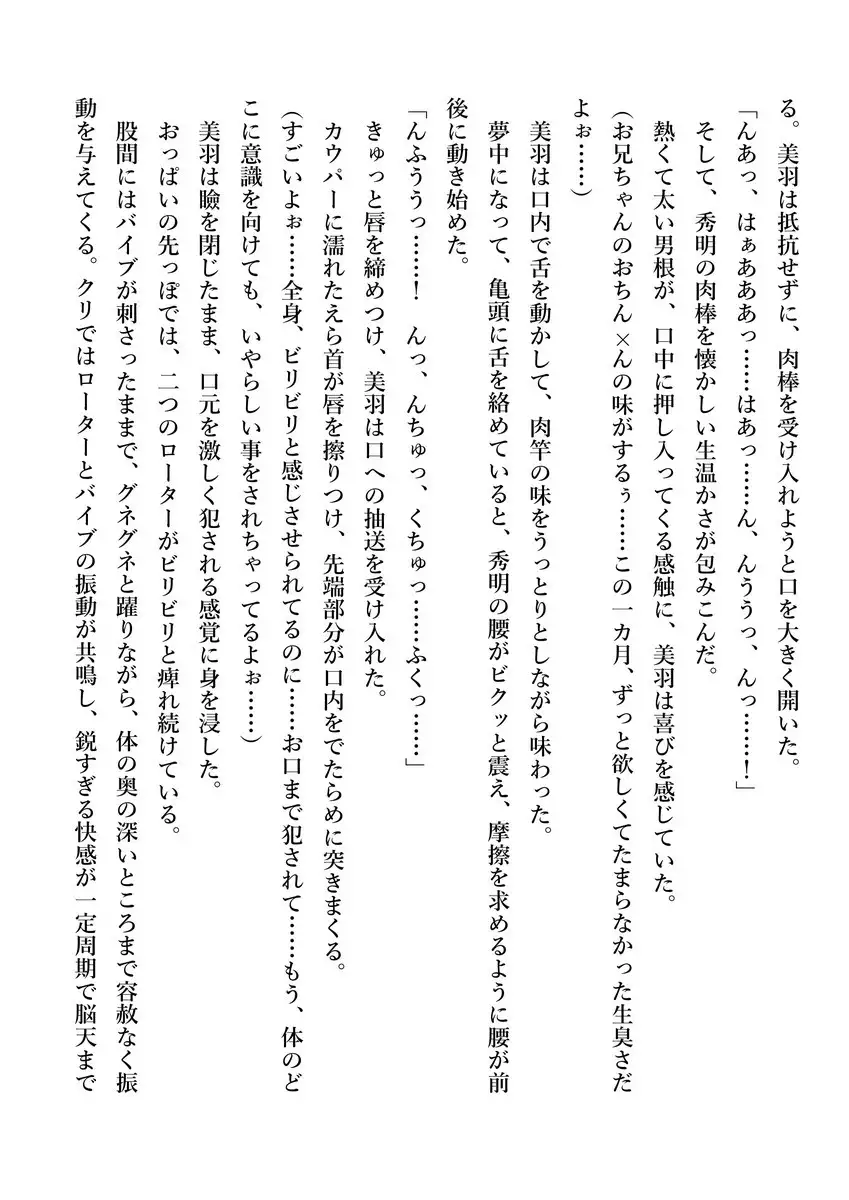 る。美羽は抵抗せずに、肉棒を受け入れようと口を大きく開いた。
「んあっ、はぁあああっ……はあっ……ん、んううっ、んっ……！」
そして、秀明の肉棒を懐かしい生温かさが包みこんだ。
熱くて太い男根が、口中に押し入ってくる感触に、美羽は喜びを感じていた。
（お兄ちゃんのおちん×んの味がするぅ……この一カ月、ずっと欲しくてたまらなかった生臭さだ
よぉ……）
美羽は口内で舌を動かして、肉竿の味をうっとりとしながら味わった。
夢中になって、亀頭に舌を絡めていると、秀明の腰がビクッと震え、摩擦を求めるように腰が前
後に動き始めた。
「んふううっ……！　んっ、んちゅっ、くちゅっ……ふくっ……」
きゅっと唇を締めつけ、美羽は口への抽送を受け入れた。
カウパーに濡れたえら首が唇を擦りつけ、先端部分が口内をでたらめに突きまくる。
（すごいよぉ……全身、ビリビリと感じさせられてるのに……お口まで犯されて……もう、体のど
こに意識を向けても、いやらしい事をされちゃってるよぉ……）
美羽は瞼を閉じたまま、口元を激しく犯される感覚に身を浸した。
おっぱいの先っぽでは、二つのローターがビリビリと痺れ続けている。
股間にはバイブが刺さったままで、グネグネと躍りながら、体の奥の深いところまで容赦なく振
動を与えてくる。クリではローターとバイブの振動が共鳴し、鋭すぎる快感が一定周期で脳天まで